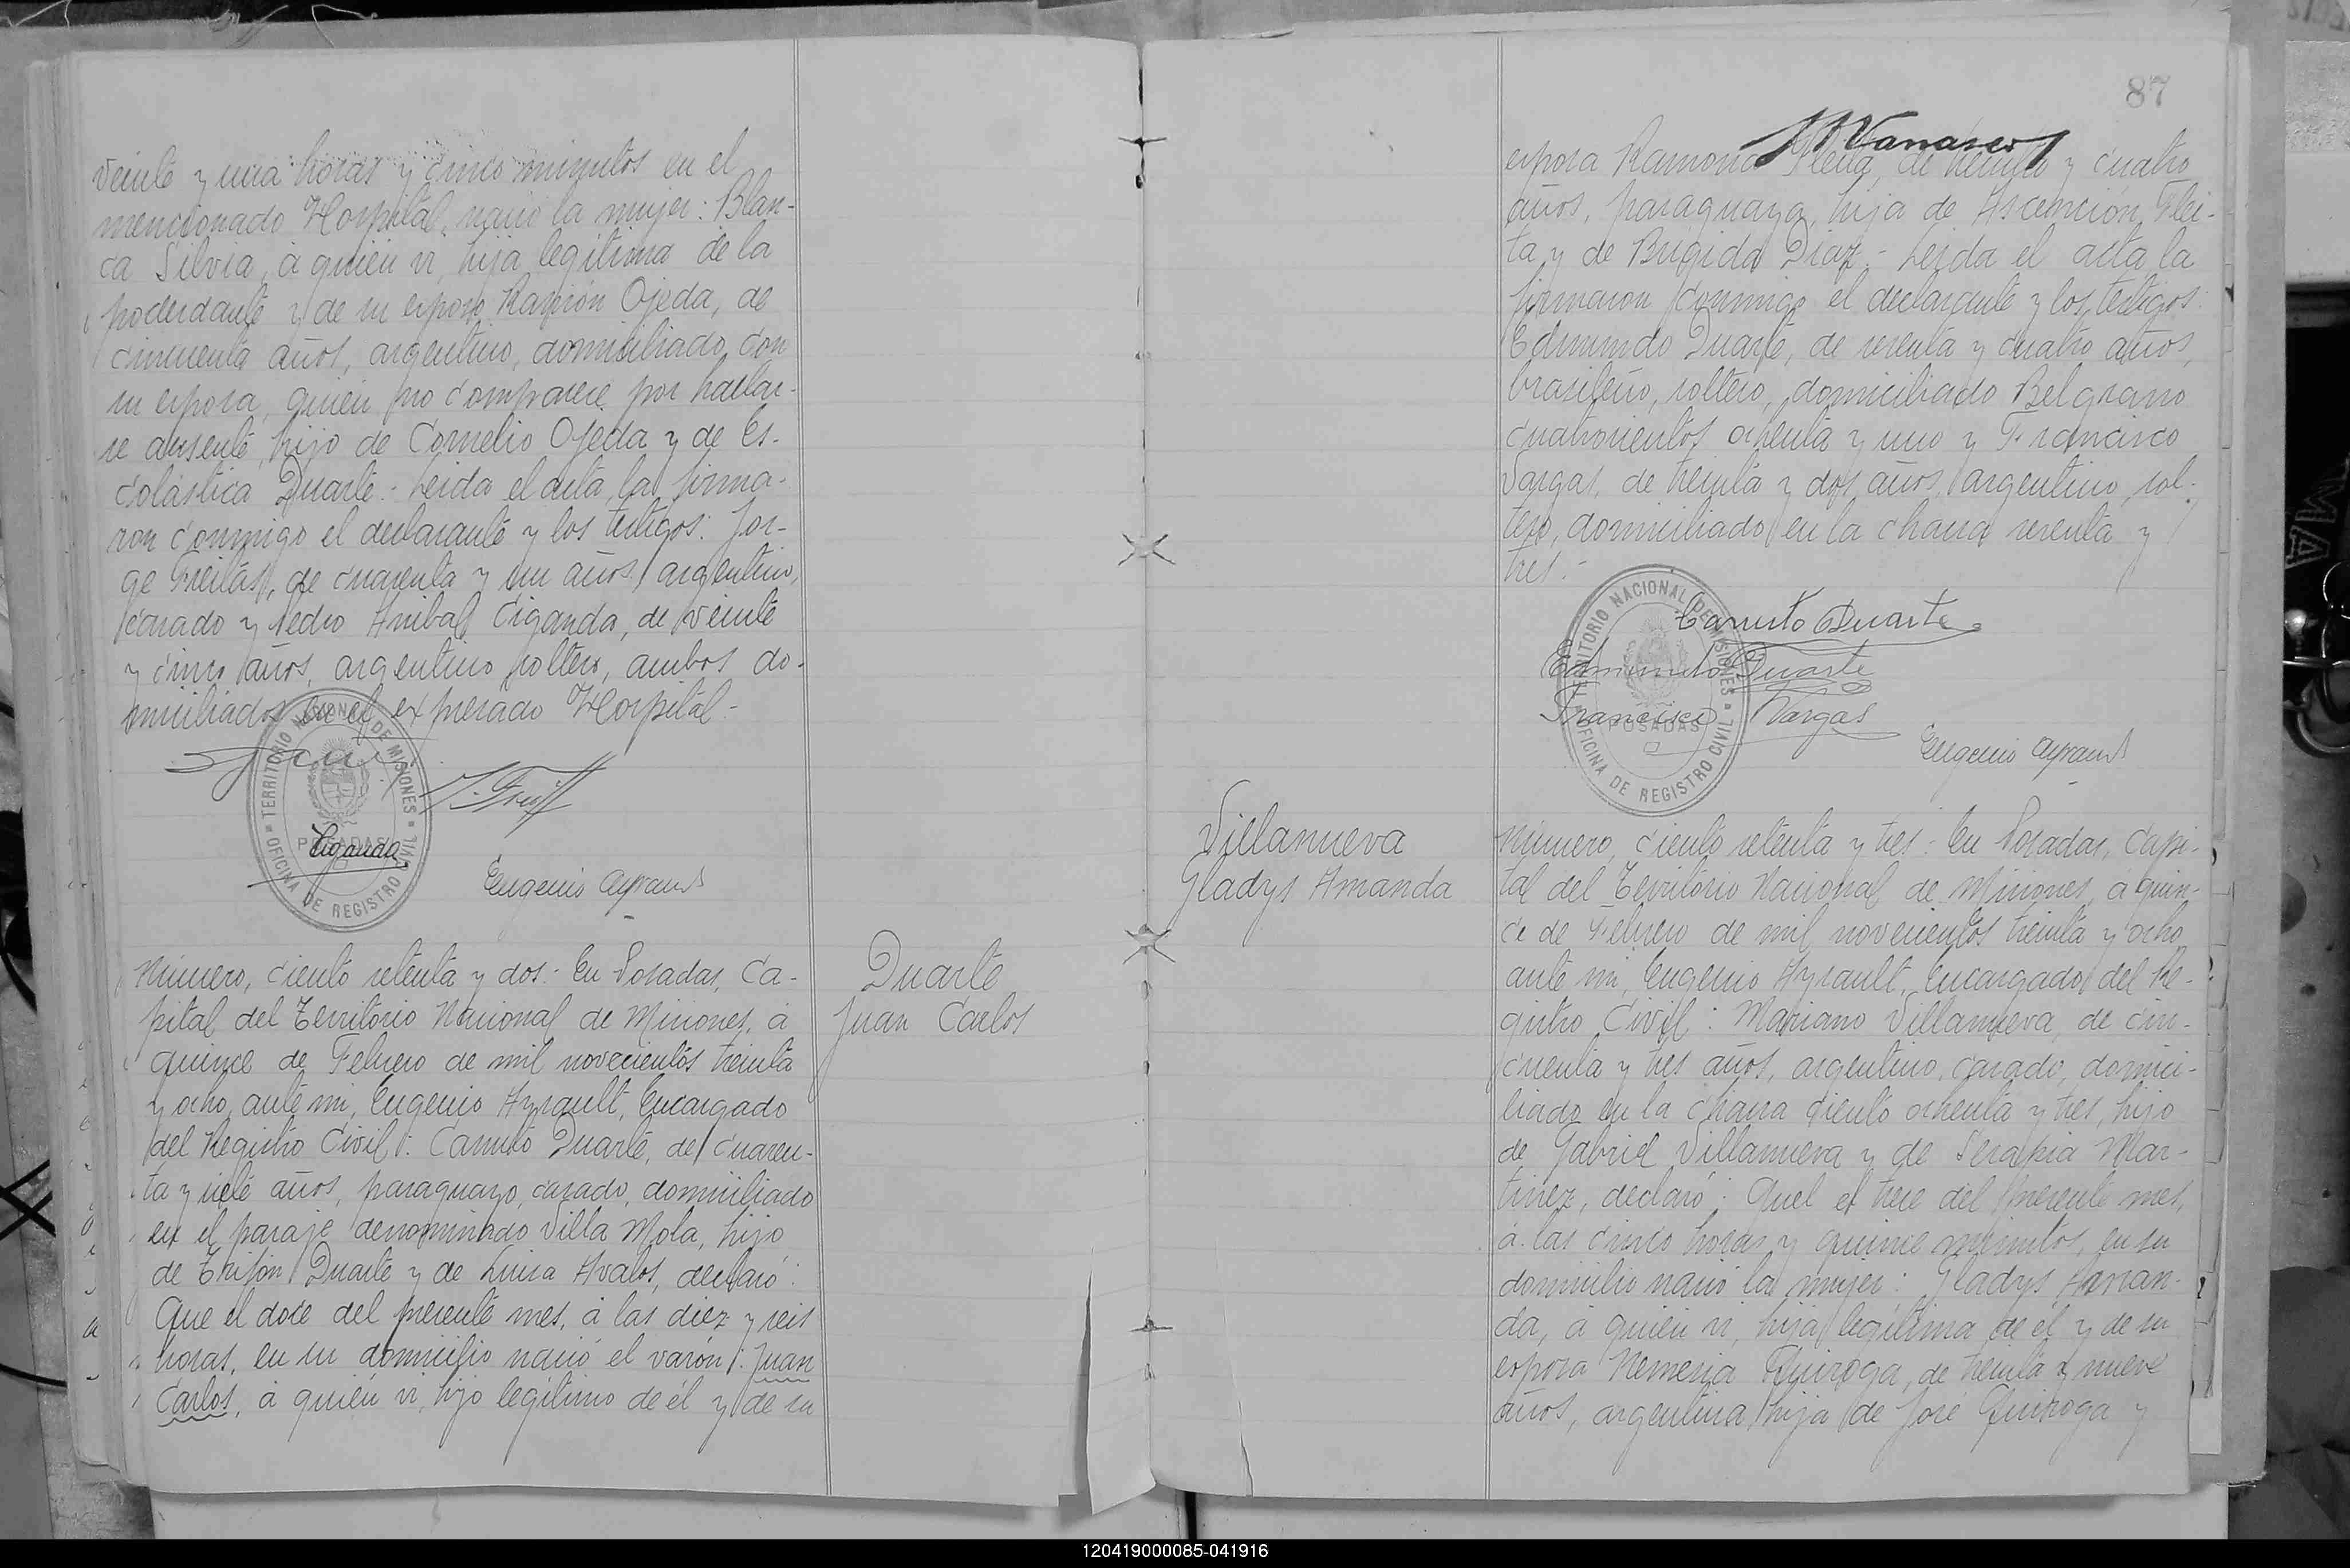 veinte y una horas y cinco minutos en el
mencionado Hospital, nació la mujer: Blan-
ca Silvia, á quién vi, hija legítima de la
poderdante y de su esposo Ramón Ojeda, de
cincuenta años, argentino, domiciliado con
su esposa, quién no comparece por hallar-
se ausente, hijo de Cornelio Ojeda y de Es-
colástica Duarte.- Leida el acta, la firma-
ron conmigo el declarante y los testigos: Jor-
ge Freitás, de cuarenta y un años, argentino,
casado y Pedro Anibal Ciganda, de veinte
y cinco años, argentino soltero, ambos do-
miciliados en el expresado Hospital.-
TERRITORIO NACIONAL DE MISIONES
POSADAS
OFICINA DE REGISTRO CIVIL
Ciganda
Eugenio Ayrault
Número, ciento setenta y dos: En Posadas, Ca-
pital del Territorio Nacional de Misiones, á
quince de Febrero de mil novecientos treinta
y ocho, ante mi, Eugenio Ayrault, Encargado
del Registro Civil: Canuto Duarte, de cuaren-
ta y siete años, paraguayo, casado, domiciliado
en el paraje denominado Villa Mola, hijo
de Trifón Duarte y de Luisa Avalos, declaró:
Que el doce del presente mes, á las diez y seis
horas, en su domicilio nació el varón: Juan
Carlos, á quién vi, hijo legítimo de él y de su
Duarte
Juan Carlos
87
esposa Ramona Fleita, de treinta y cuatro
años, paraguaya, hija de Ascención Flei-
ta y de Brigida Diaz.- Leida el acta la
firmaron conmigo el declarante y los testigos:
Edmundo Duarte, de sesenta y cuatro años,
brasileño, soltero, domiciliado Belgrano
cuatrocientos ochenta y uno y Francisco
Vargas, de treinta y dos años, argentino, sol-
tero, domiciliado en la chacra sesenta y
tres.-
TERRITORIO NACIONAL DE MISIONES
POSADAS
OFICINA DE REGISTRO CIVIL
Canuto Duarte
Edmundo Duarte
Francisco Vargas
Eugenio Ayrault
Villanueva
Gladys Amanda
Número, ciento setenta y tres: En Posadas, Capi-
tal del Territorio Nacional de Misiones, á quin-
ce de Febrero de mil novecientos treinta y ocho,
ante mi, Eugenio Ayrault, Encargado del Re-
gistro Civil: Mariano Villanueva, de cin-
cuenta y tres años, argentino, casado, domici-
liado en la chacra ciento ochenta y tres, hijo
de Gabriel Villanueva y de Serapia Mar-
tinez, declaró: Quel el trece del presente mes,
á las cinco horas y quince minutos, en su
domicilio nació la mujer: Gladys Aman-
da, á quién vi, hija legítima de él y de su
esposa Nemesia Quiroga, de treinta y nueve
años, argentina, hija de José Quiroga y
120419000085-041916